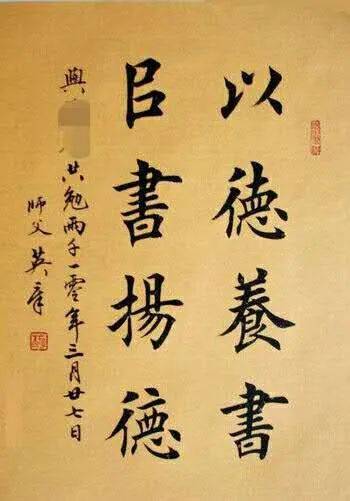 以德養書
㠯書揚德
與
共勉兩千一零年三月廿七日
师父英章